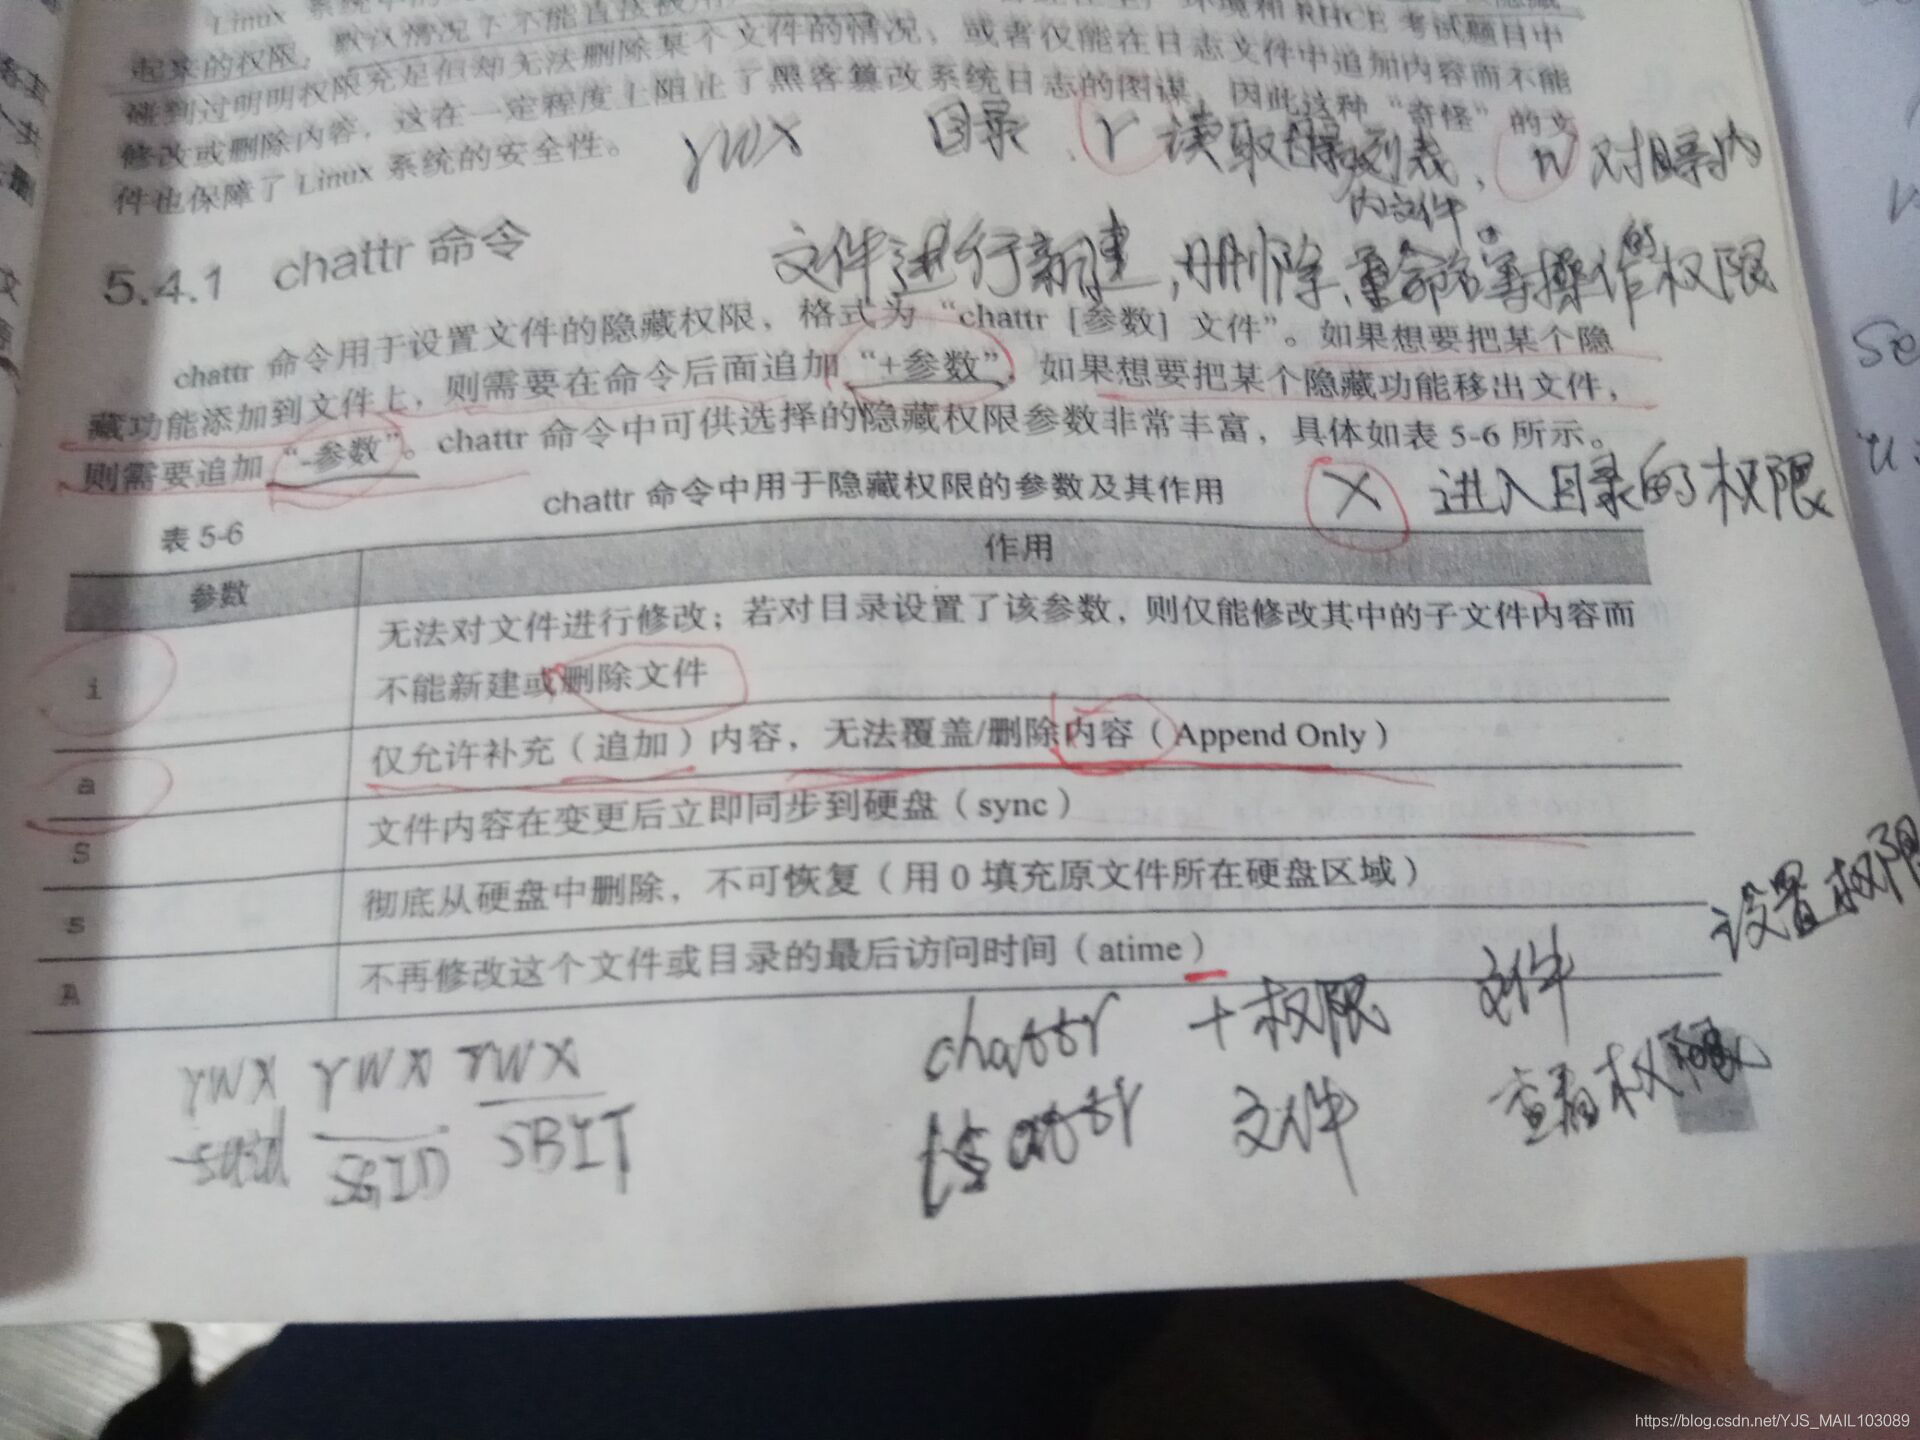 起来的权限，默认情况下不能直接被用
环境和 RHCE 考试题目中
碰到过明明权限充足但却无法删除某个文件的情况，或者仅能在日志文件中追加内容而不能
修改或删除内容，这在一定程度上阻止了黑客篡改系统日志的图谋，因此这种“奇怪”的文
件也保障了 Linux 系统的安全性。
rwx 目录 r 读取目录列表， w 对目录内
内文件。
文件进行新建，删除、重命名等操作的权限
5.4.1 chattr 命令
chattr 命令用于设置文件的隐藏权限，格式为“chattr [参数] 文件”。如果想要把某个隐
藏功能添加到文件上，则需要在命令后面追加“+参数”，如果想要把某个隐藏功能移出文件，
则需要追加“-参数”。chattr 命令中可供选择的隐藏权限参数非常丰富，具体如表 5-6 所示。
x 进入目录的权限
表 5-6 chattr 命令中用于隐藏权限的参数及其作用
参数 作用
i 无法对文件进行修改；若对目录设置了该参数，则仅能修改其中的子文件内容而
不能新建或删除文件
a 仅允许补充（追加）内容，无法覆盖/删除内容（Append Only）
S 文件内容在变更后立即同步到硬盘（sync）
s 彻底从硬盘中删除，不可恢复（用 0 填充原文件所在硬盘区域）
A 不再修改这个文件或目录的最后访问时间（atime）
chattr +权限 文件 设置权限
lsattr 文件 查看权限
rwx rwx rwx
suid SGID SBIT
https://blog.csdn.net/YJS_MAIL103089